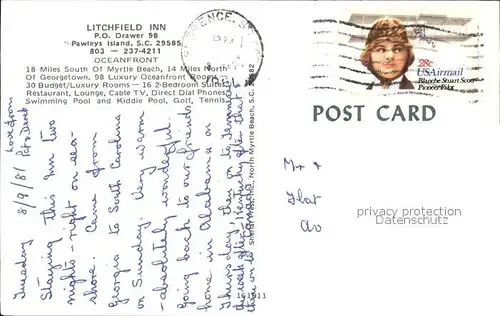 LITCHFIELD INN
P.O. Drawer 98
Pawleys Island, S.C. 29585
803 — 237-4211
OCEANFRONT
18 Miles South Of Myrtle Beach, 14 Miles North
Of Georgetown. 98 Luxury Oceanfront Rooms
30 Budget/Luxury Rooms — 16 2-Bedroom Suites,
Restaurant, Lounge, Cable TV, Direct Dial Phones,
Swimming Pool and Kiddie Pool, Golf, Tennis.
28c
USAirmail
Blanche Stuart Scott
Pioneer Pilot
POST CARD
Tuesday 8/9/81
Staying this Inn two
nights - right on sea-
shore. Came from
Georgia to South Carolina
on Sunday. Very warm
- absolutely wonderful.
Going back to our friends
home in Alabama on
Thursday, then on to
Love from
Mr +
Flat
Av
privacy protection
watermark
North Myrtle Beach, S.C.
161911